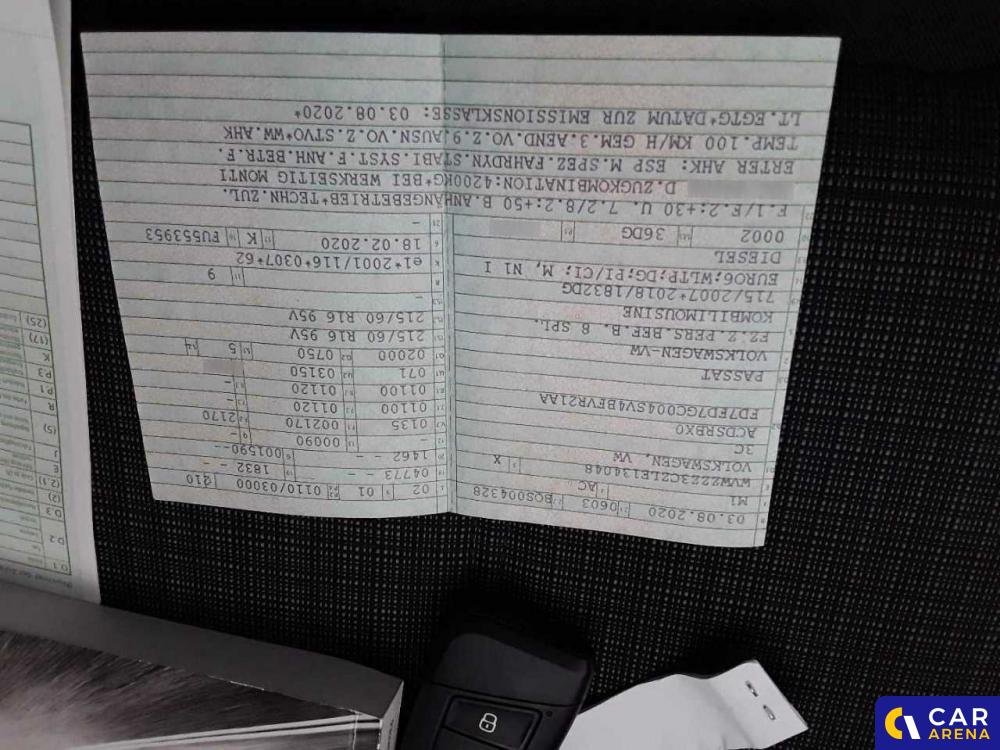 03.08.2020 0603 BOS004328
M1 AC
WVWZZZ3CZLE134048 X
VOLKSWAGEN, VW
3C
ACDSRBX0
FD7FD7GC004SV4BFVR21AA
PASSAT
VOLKSWAGEN-VW
FZ.Z.PERS.BEF.B. 8 SPL.
KOMBILIMOUSINE
715/2007*2018/1832DG
EURO6;WLTP;DG;PI/CI; M, N1 I
DIESEL
0002 36DG
02 01 0110/03000 210
04773 – – 1832 – –
1462 – – 001590––
– 00090 –
0135 002170 2170
01100 01120 –
01100 01120 –
071 03150
02000 0750 5
215/60 R16 95V
215/60 R16 95V
–
9
e1*2001/116*0307*62
18.02.2020 K FU553953
–
F.1/F.2:+30 U. 7.2/8.2:+50 B.ANHÄNGEBETRIEB*TECHN.ZUL.
D.ZUGKOMBINATION:4200KG*BEI WERKSEITIG MONTI
ERTER AHK: ESP M.SPEZ.FAHRDYN.STABI.SYST.F.ANH.BETR.F.
TEMP.100 KM/H GEM.3.AEND.VO.Z.9.AUSN.VO.Z.STVO*WW.AHK
LT.EGTG*DATUM ZUR EMISSIONSKLASSE: 03.08.2020*
D.1
D.2
D.3
(2)
(2.1)
E
J
(5)
R
P.1
P.3
K
(17)
(25)
CAR
ARENA